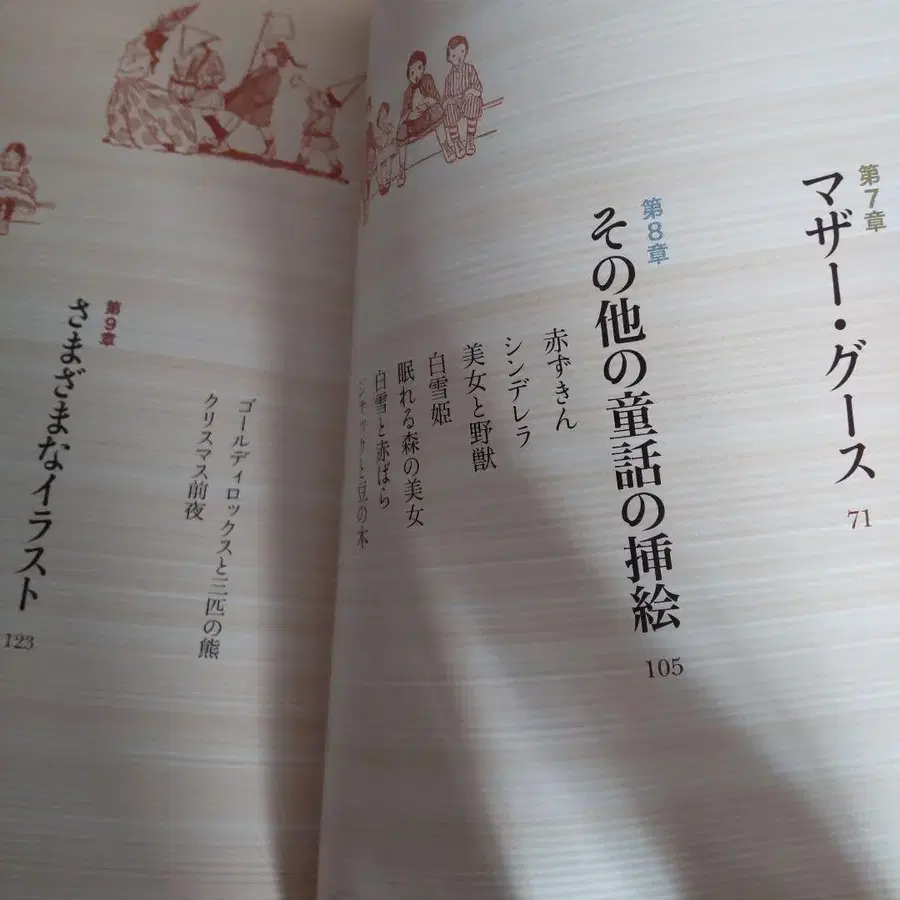 第7章
マザー・グース
71
第8章
その他の童話の挿絵
105
赤ずきん
シンデレラ
美女と野獣
白雪姫
眠れる森の美女
白雪と赤ばら
ジャックと豆の木
ゴールディロックスと三匹の熊
クリスマス前夜
第9章
さまざまなイラスト
123